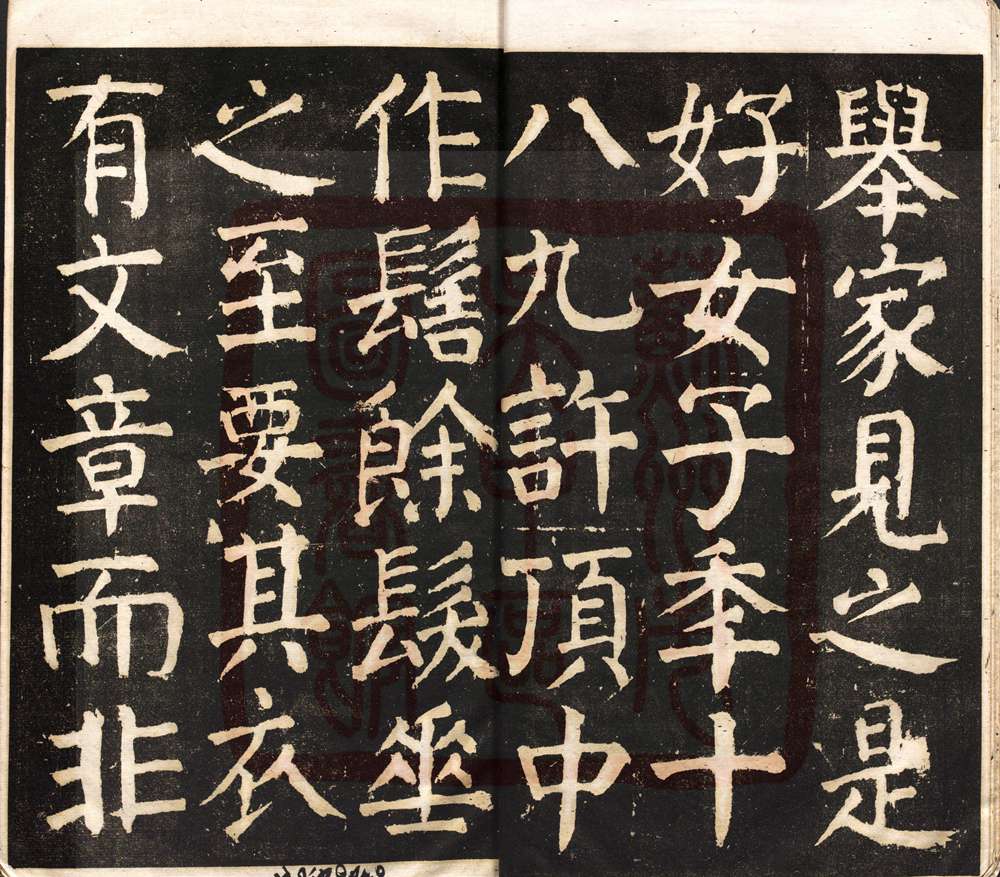 舉家見之是
好女子秊十
八九許頂中
作髻餘髮垂
之至要其衣
有文章而非